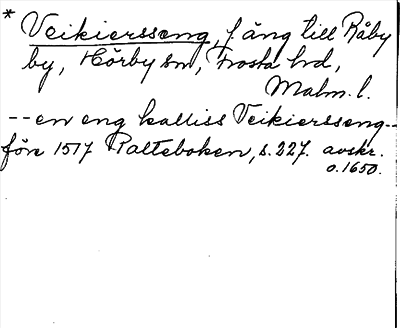 * Veikiersseng, f äng till Råby
by, Hörby sn, Frosta hd,
Malm. l.
-- en eng kalliss Veikiersseng --
före 1517 Palteboken, s. 227. avskr.
o. 1650.